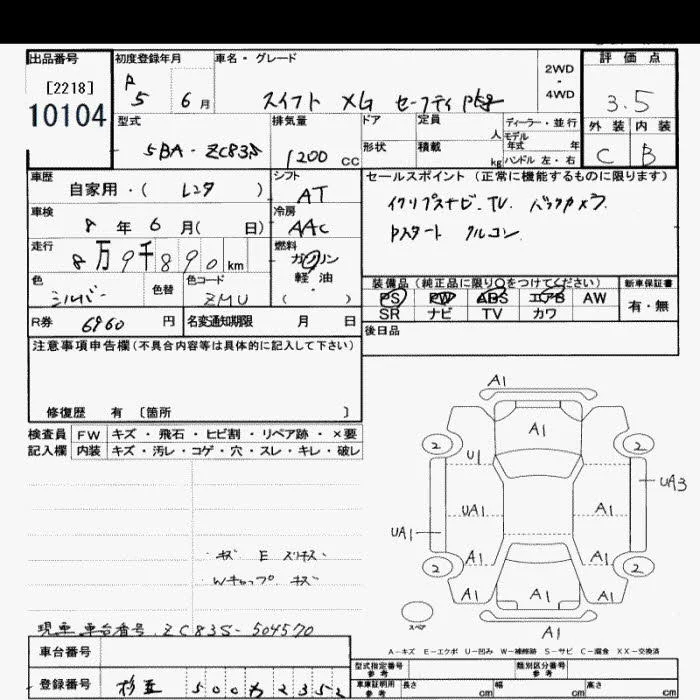 出品番号 初度登録年月 車名・グレード 2WD・4WD 評価点
[2218]
10104
R 5 6月
スイフト XG セーフティPkg
3.5
型式 排気量 ドア 定員 人 ディーラー・並行 外装 内装
形状 積載 kg モデル年式 年 ハンドル 左・右
5BA-ZC83S 1200 CC
C B
車歴 シフト セールスポイント (正常に機能するものに限ります)
自家用・( レンタ ) AT
イクリプスナビ・TV. バックカメラ
車検 8年 6月( 日) 冷房 AAC
Pスタート クルコン
走行 8万9千890km 燃料 ガソリン 軽油 ( )
色 シルバー 色替 色コード ZMU
装備品 (純正品に限り○をつけてください) 新車保証書
PS PW ABS エアB AW 有・無
SR ナビ TV カワ
R券 6960円 名変通知期限 月 日
後日品
注意事項申告欄 (不具合内容等は具体的に記入して下さい)
修復歴 有 [箇所 ]
検査員 FW キズ・飛石・ヒビ割・リペア跡・×要
記入欄 内装 キズ・汚レ・コゲ・穴・スレ・キレ・破レ
A1
A1
2 2
U1
UA3
UA1 A1
UA1
A1 A1
2 2
A1 A1 A1
スペア
A1
キズ E スリキズ
Wキャップ キズ
現車 車台番号 ZC83S-504570
A-キズ E-エクボ U-凹み W-補修跡 S-サビ C-腐食 XX-交換済
車台番号
型式指定番号 参考 類別区分番号 参考
登録番号 500 カ 2352
車庫証明用 参考 長さ cm 幅 cm 高さ cm